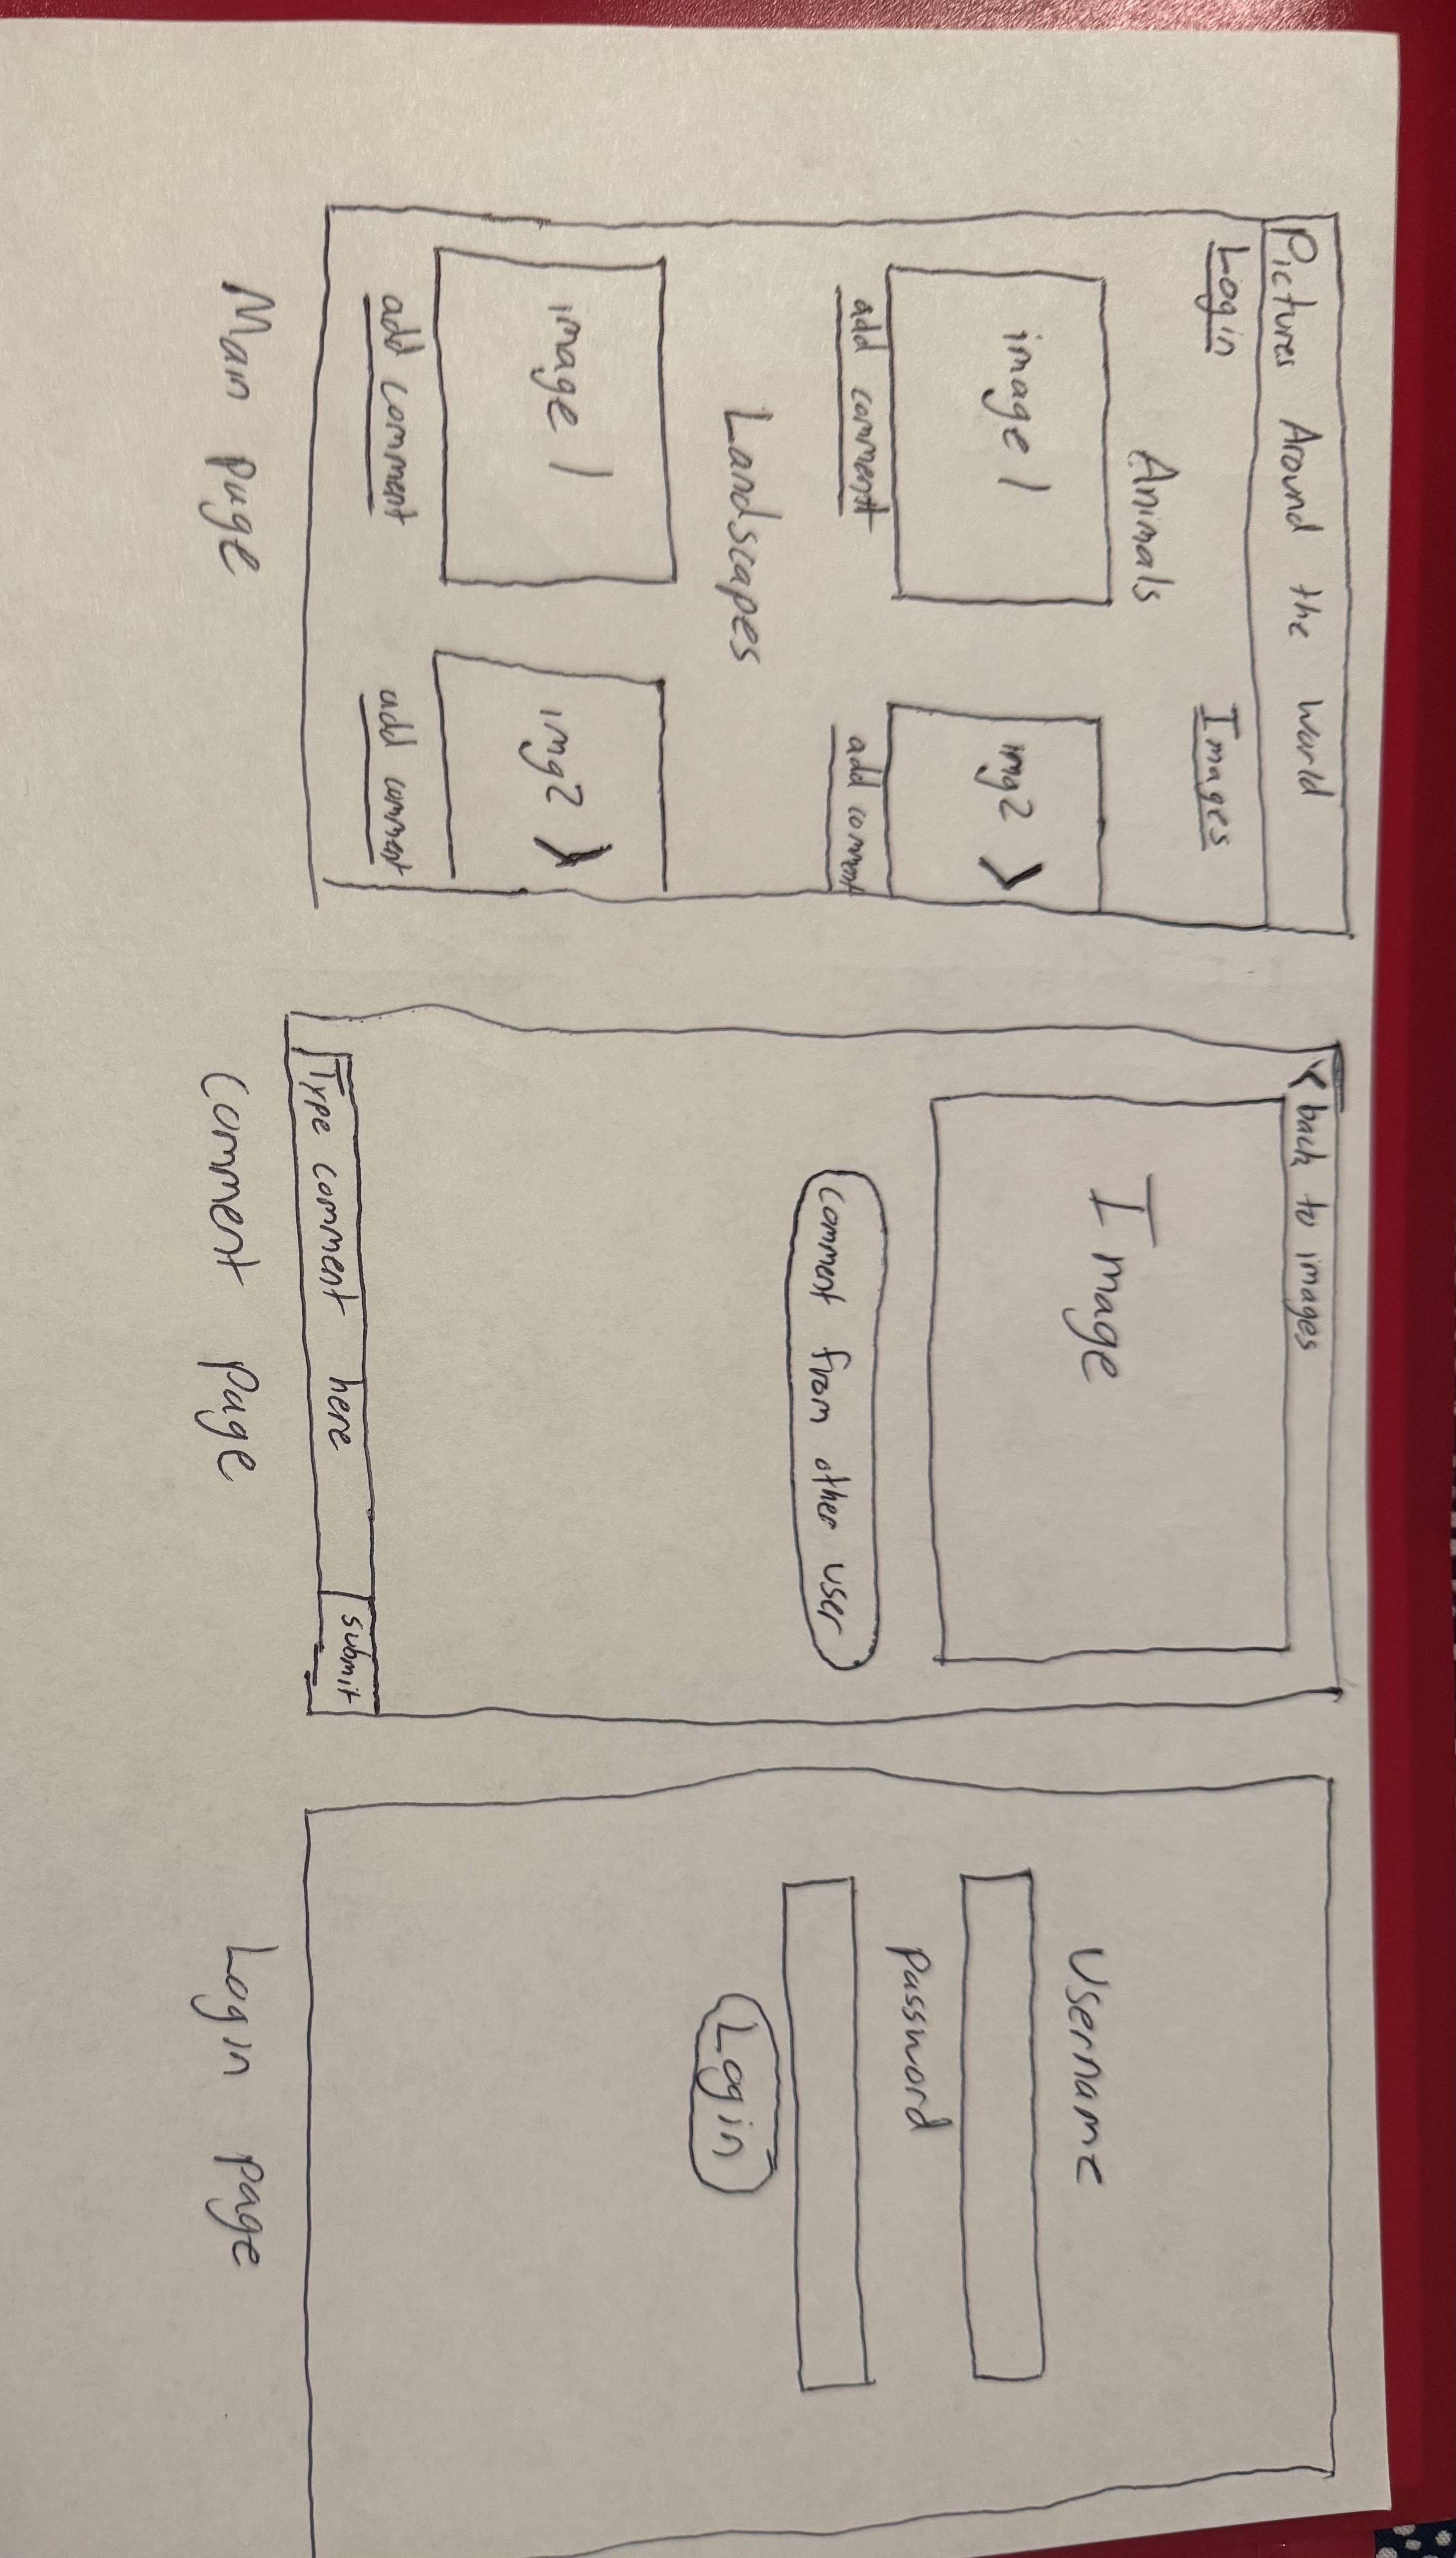 Pictures Around the World
Login Images
Animals
image 1 img2 >
add comment add comment
Landscapes
image 1 img2 >
add comment add comment
Main page
< back to images
Image
comment from other user
Type comment here submit
comment page
Username
password
Login
Login page